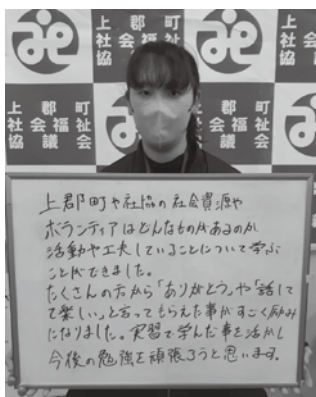 上郡町
社会福祉
協議会
上郡町や社協の社会資源や
ボランティアはどんなものがあるのか
活動や工夫していることについて学ぶ
ことができました。
たくさんの方から「ありがとう」や「話して
て楽しい」と言ってもらえた事がすごく励み
になりました。実習で学んだ事を活かし
今後の勉強を頑張ろうと思います。